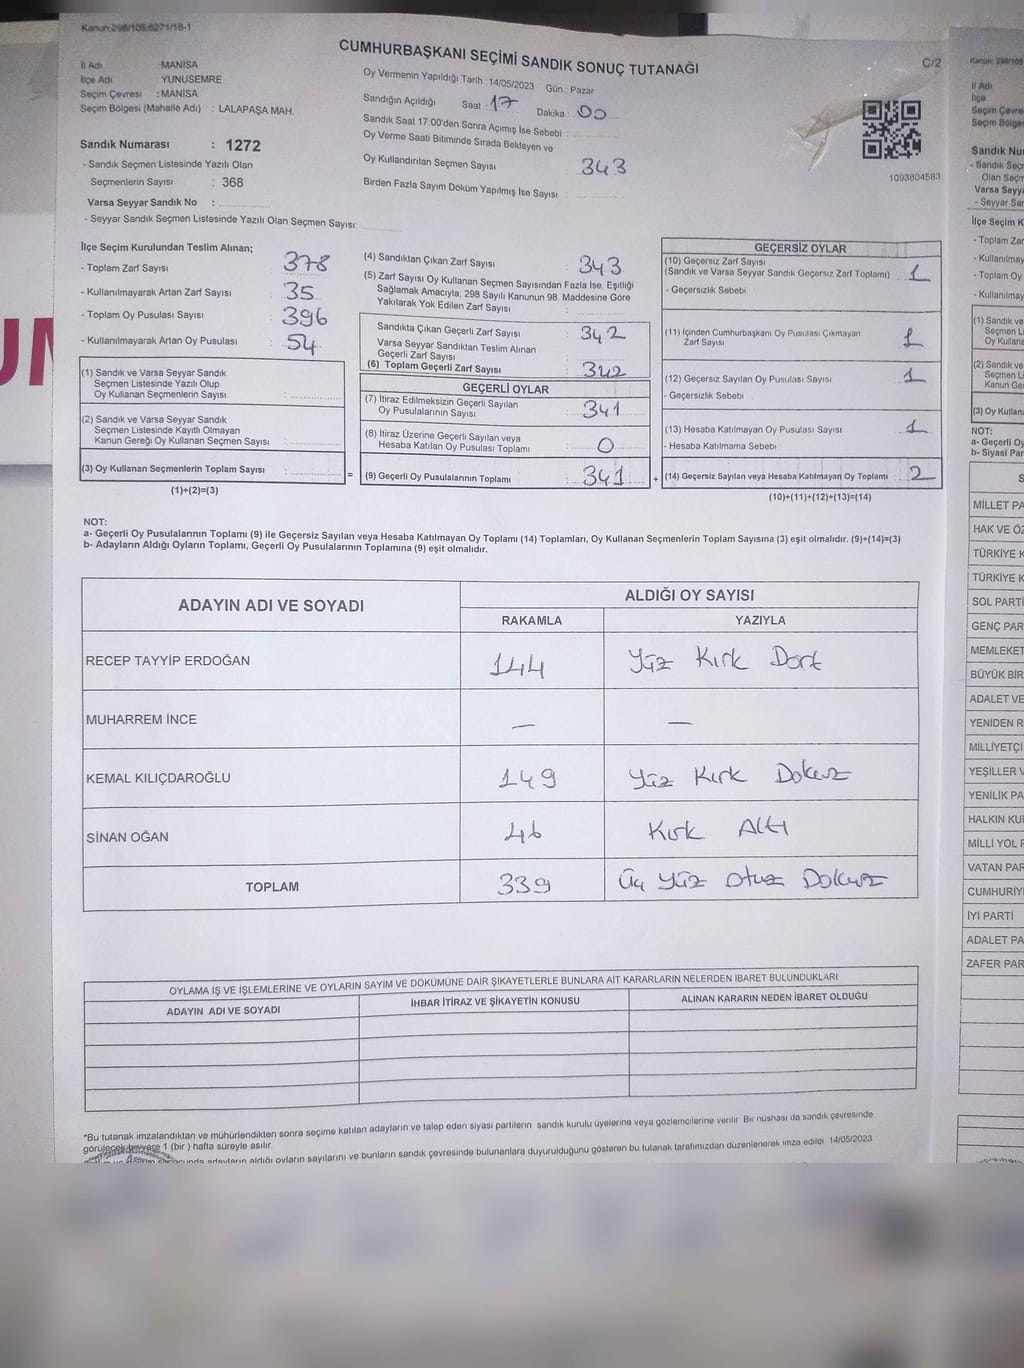 Kanun:298/105,6271/18-1
CUMHURBAŞKANI SEÇİMİ SANDIK SONUÇ TUTANAĞI
C/2
İl Adı : MANİSA
İlçe Adı : YUNUSEMRE
Seçim Çevresi : MANİSA
Seçim Bölgesi (Mahalle Adı) : LALAPAŞA MAH.
Sandık Numarası : 1272
- Sandık Seçmen Listesinde Yazılı Olan
Seçmenlerin Sayısı : 368
Varsa Seyyar Sandık No :
- Seyyar Sandık Seçmen Listesinde Yazılı Olan Seçmen Sayısı:
Oy Vermenin Yapıldığı Tarih : 14/05/2023 Gün : Pazar
Sandığın Açıldığı Saat : 17 Dakika : 00
Sandık Saat 17:00'den Sonra Açımış İse Sebebi :
Oy Verme Saati Bitiminde Sırada Bekleyen ve
Oy Kullandırılan Seçmen Sayısı : 343
Birden Fazla Sayım Döküm Yapılmış İse Sayısı :
1093804583
İlçe Seçim Kurulundan Teslim Alınan;
- Toplam Zarf Sayısı : 378
- Kullanılmayarak Artan Zarf Sayısı : 35
- Toplam Oy Pusulası Sayısı : 396
- Kullanılmayarak Artan Oy Pusulası : 54
(1) Sandık ve Varsa Seyyar Sandık
Seçmen Listesinde Yazılı Olup
Oy Kullanan Seçmenlerin Sayısı :
(2) Sandık ve Varsa Seyyar Sandık
Seçmen Listesinde Kayıtlı Olmayan
Kanun Gereği Oy Kullanan Seçmen Sayısı :
(3) Oy Kullanan Seçmenlerin Toplam Sayısı : =
(1)+(2)=(3)
(4) Sandıktan Çıkan Zarf Sayısı : 343
(5) Zarf Sayısı Oy Kullanan Seçmen Sayısından Fazla İse, Eşitliği
Sağlamak Amacıyla, 298 Sayılı Kanunun 98. Maddesine Göre
Yakılarak Yok Edilen Zarf Sayısı :
Sandıkta Çıkan Geçerli Zarf Sayısı : 342
Varsa Seyyar Sandıktan Teslim Alınan
Geçerli Zarf Sayısı :
(6) Toplam Geçerli Zarf Sayısı : 342
GEÇERLİ OYLAR
(7) İtiraz Edilmeksizin Geçerli Sayılan
Oy Pusulalarının Sayısı : 341
(8) İtiraz Üzerine Geçerli Sayılan veya
Hesaba Katılan Oy Pusulası Toplamı : 0
(9) Geçerli Oy Pusulalarının Toplamı : 341 +
GEÇERSİZ OYLAR
(10) Geçersiz Zarf Sayısı
(Sandık ve Varsa Seyyar Sandık Geçersiz Zarf Toplamı) : 1
- Geçersizlik Sebebi
(11) İçinden Cumhurbaşkanı Oy Pusulası Çıkmayan
Zarf Sayısı : 1
(12) Geçersiz Sayılan Oy Pusulası Sayısı : 1
- Geçersizlik Sebebi
(13) Hesaba Katılmayan Oy Pusulası Sayısı : 1
- Hesaba Katılmama Sebebi
(14) Geçersiz Sayılan veya Hesaba Katılmayan Oy Toplamı : 2
(10)+(11)+(12)+(13)=(14)
NOT:
a- Geçerli Oy Pusulalarının Toplamı (9) ile Geçersiz Sayılan veya Hesaba Katılmayan Oy Toplamı (14) Toplamları, Oy Kullanan Seçmenlerin Toplam Sayısına (3) eşit olmalıdır. (9)+(14)=(3)
b- Adayların Aldığı Oyların Toplamı, Geçerli Oy Pusulalarının Toplamına (9) eşit olmalıdır.
ADAYIN ADI VE SOYADI ALDIĞI OY SAYISI
RAKAMLA YAZIYLA
RECEP TAYYİP ERDOĞAN 144 Yüz Kırk Dört
MUHARREM İNCE — —
KEMAL KILIÇDAROĞLU 149 Yüz Kırk Dokuz
SİNAN OĞAN 46 Kırk Altı
TOPLAM 339 Üç Yüz Otuz Dokuz
OYLAMA İŞ VE İŞLEMLERİNE VE OYLARIN SAYIM VE DÖKÜMÜNE DAİR ŞİKAYETLERLE BUNLARA AİT KARARLARIN NELERDEN İBARET BULUNDUKLARI
ADAYIN ADI VE SOYADI İHBAR İTİRAZ VE ŞİKAYETİN KONUSU ALINAN KARARIN NEDEN İBARET OLDUĞU
*Bu tutanak imzalandıktan ve mühürlendikten sonra seçime katılan adayların ve talep eden siyasi partilerin sandık kurulu üyelerine veya gözlemcilerine verilir. Bir nüshası da sandık çevresinde
görülecek bir yere 1 (bir ) hafta süreyle asılır.
adayların aldığı oyların sayılarını ve bunların sandık çevresinde bulunanlara duyurulduğunu gösteren bu tutanak tarafımızdan düzenlenerek imza edildi. 14/05/2023
Kanun: 298/105
İl Adı
İlçe
Seçim Çevre
Seçim Bölge
Sandık Nu
- Sandık Seç
Olan Seçm
Varsa Seyy
- Seyyar Sar
İlçe Seçim K
- Toplam Zar
- Kullanılmay
- Toplam Oy
- Kullanılmay
(1) Sandık ve
Seçmen Li
Oy Kullana
(2) Sandık ve
Seçmen Li
Kanun Ger
(3) Oy Kullan
NOT:
a- Geçerli Oy
b- Siyasi Par
S
MİLLET PA
HAK VE ÖZ
TÜRKİYE K
TÜRKİYE K
SOL PARTİ
GENÇ PAR
MEMLEKET
BÜYÜK BİR
ADALET VE
YENİDEN R
MİLLİYETÇİ
YEŞİLLER V
YENİLİK PA
HALKIN KU
MİLLİ YOL P
VATAN PAR
CUMHURİY
İYİ PARTİ
ADALET PA
ZAFER PAR